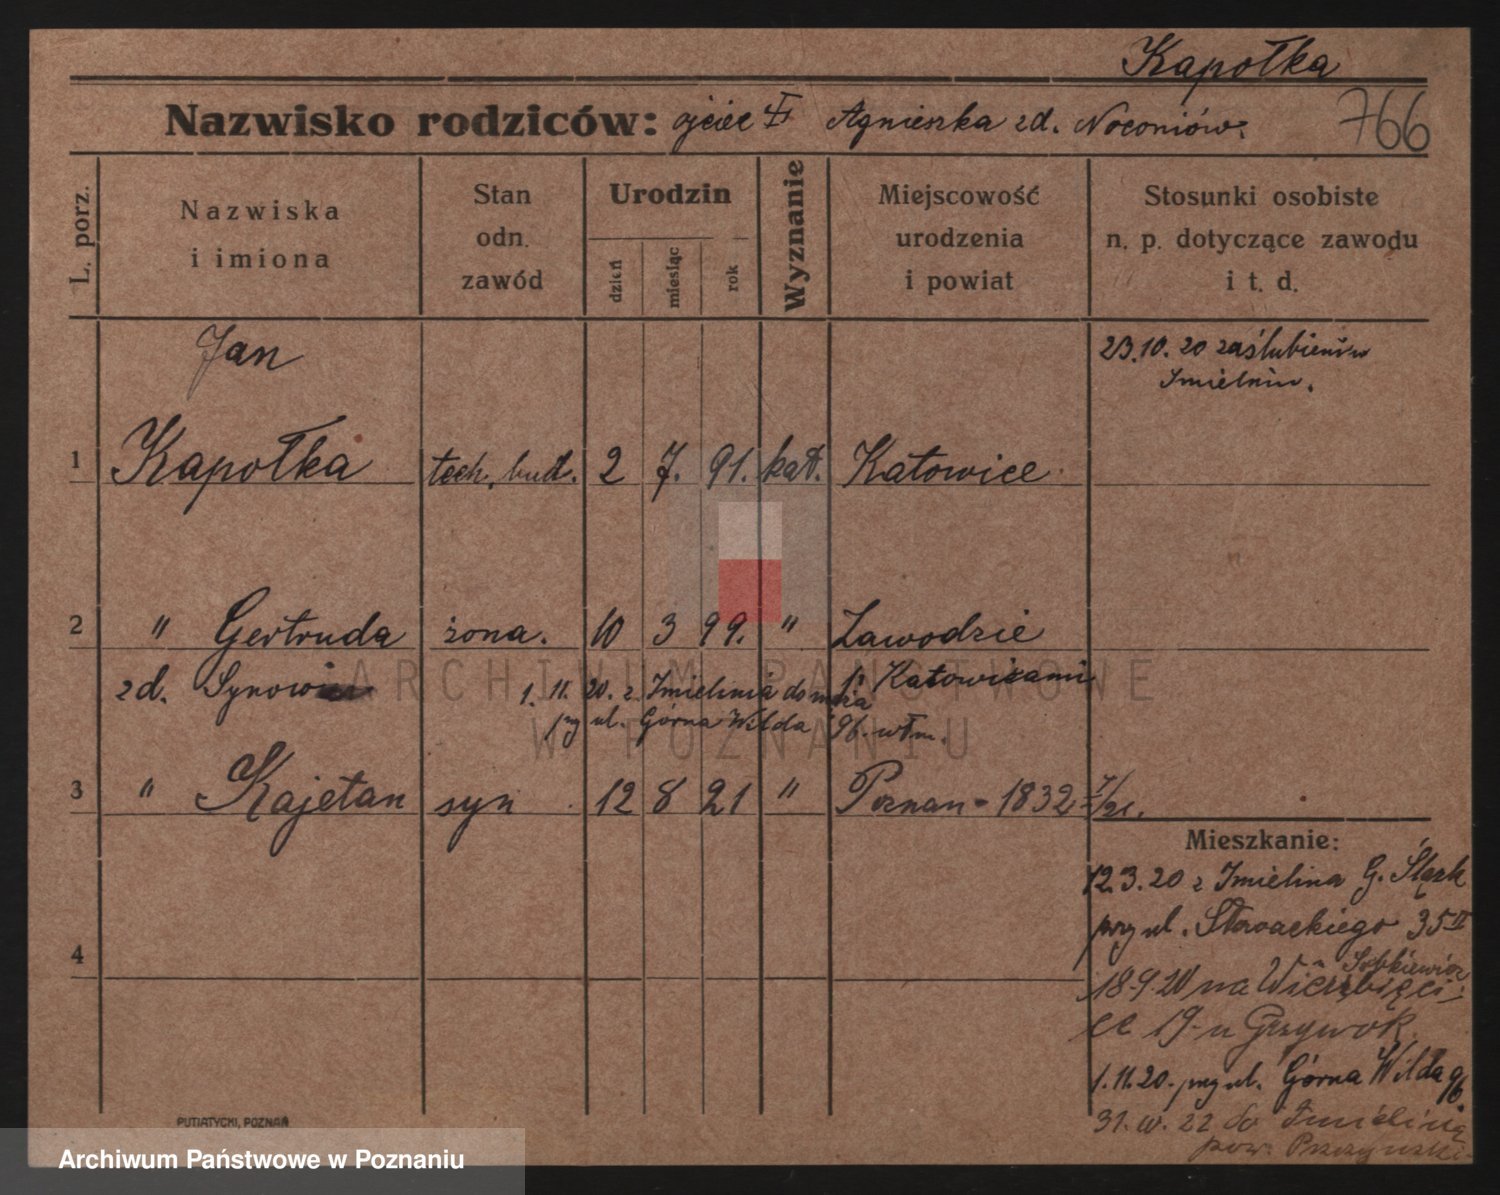 Kapołka
Nazwisko rodziców: ojciec Agnieszka zd. Noconiów.
766
L. porz.
Nazwiska
i imiona
Stan
odn.
zawód
Urodzin
dzień
miesiąc
rok
Wyznanie
Miejscowość
urodzenia
i powiat
Stosunki osobiste
n. p. dotyczące zawodu
i t. d.
Jan
23.10.20 zaślubieni w
Imielniu.
1 Kapołka tech. bud. 2 7. 91. kat. Katowice
2 " Gertruda żona. 10 3 99. " Zawodzie
zd. p. Katowicami
1. 11. 20. z Imielinia do m.
przy ul. Górna Wilda 96. włm.
3 " Kajetan syn 12 8 21 " Poznań - 1832
Mieszkanie:
12.3.20 z Imielina G. Śląsk
przy ul. Słowackiego 35 II
18.9.20 na Wierzbięci-
ce 19 - u Grzywok
1.11.20. przy ul. Górna Wilda 96.
31. 22 do Imielina
pow.
4
PUTIATYCKI, POZNAŃ
ARCHIWUM PAŃSTWOWE
W POZNANIU
Archiwum Państwowe w Poznaniu